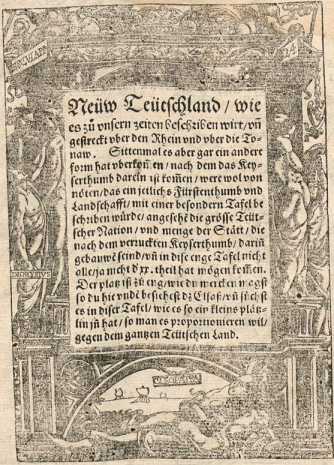 Neüw Teütschland / wie
es zů vnsern zeiten beschriben wirt / vñ
gestreckt vber den Rhein vnd vber die To-
naw. Sittenmal es aber gar ein andere
form hat vberkoṁen / nach dem das Key-
serthumb darein ist koṁen / were wol von
nöten / das ein jetlichs Fürstenthumb vnd
Landschafft / mit einer besondern Tafel be
schriben würde / angesehē die grösse Teüt-
scher Nation / vnd menge der Stätt / die
nach dem verruckten Keyserthumb / dariñ
gebauwē seind / vñ in dise enge Tafel nicht
alle / ja nicht d' xx. theil hat mögen koṁen.
Der platz ist zů eng / wie du mercken magst
so du hie vndē besihest dz Elsaß / vñ sůchst
es in diser Tafel / wie es so ein klein plätz-
lin jñ hat / so man es proportionieren wil /
gegen dem gantzen Teütschen Land.